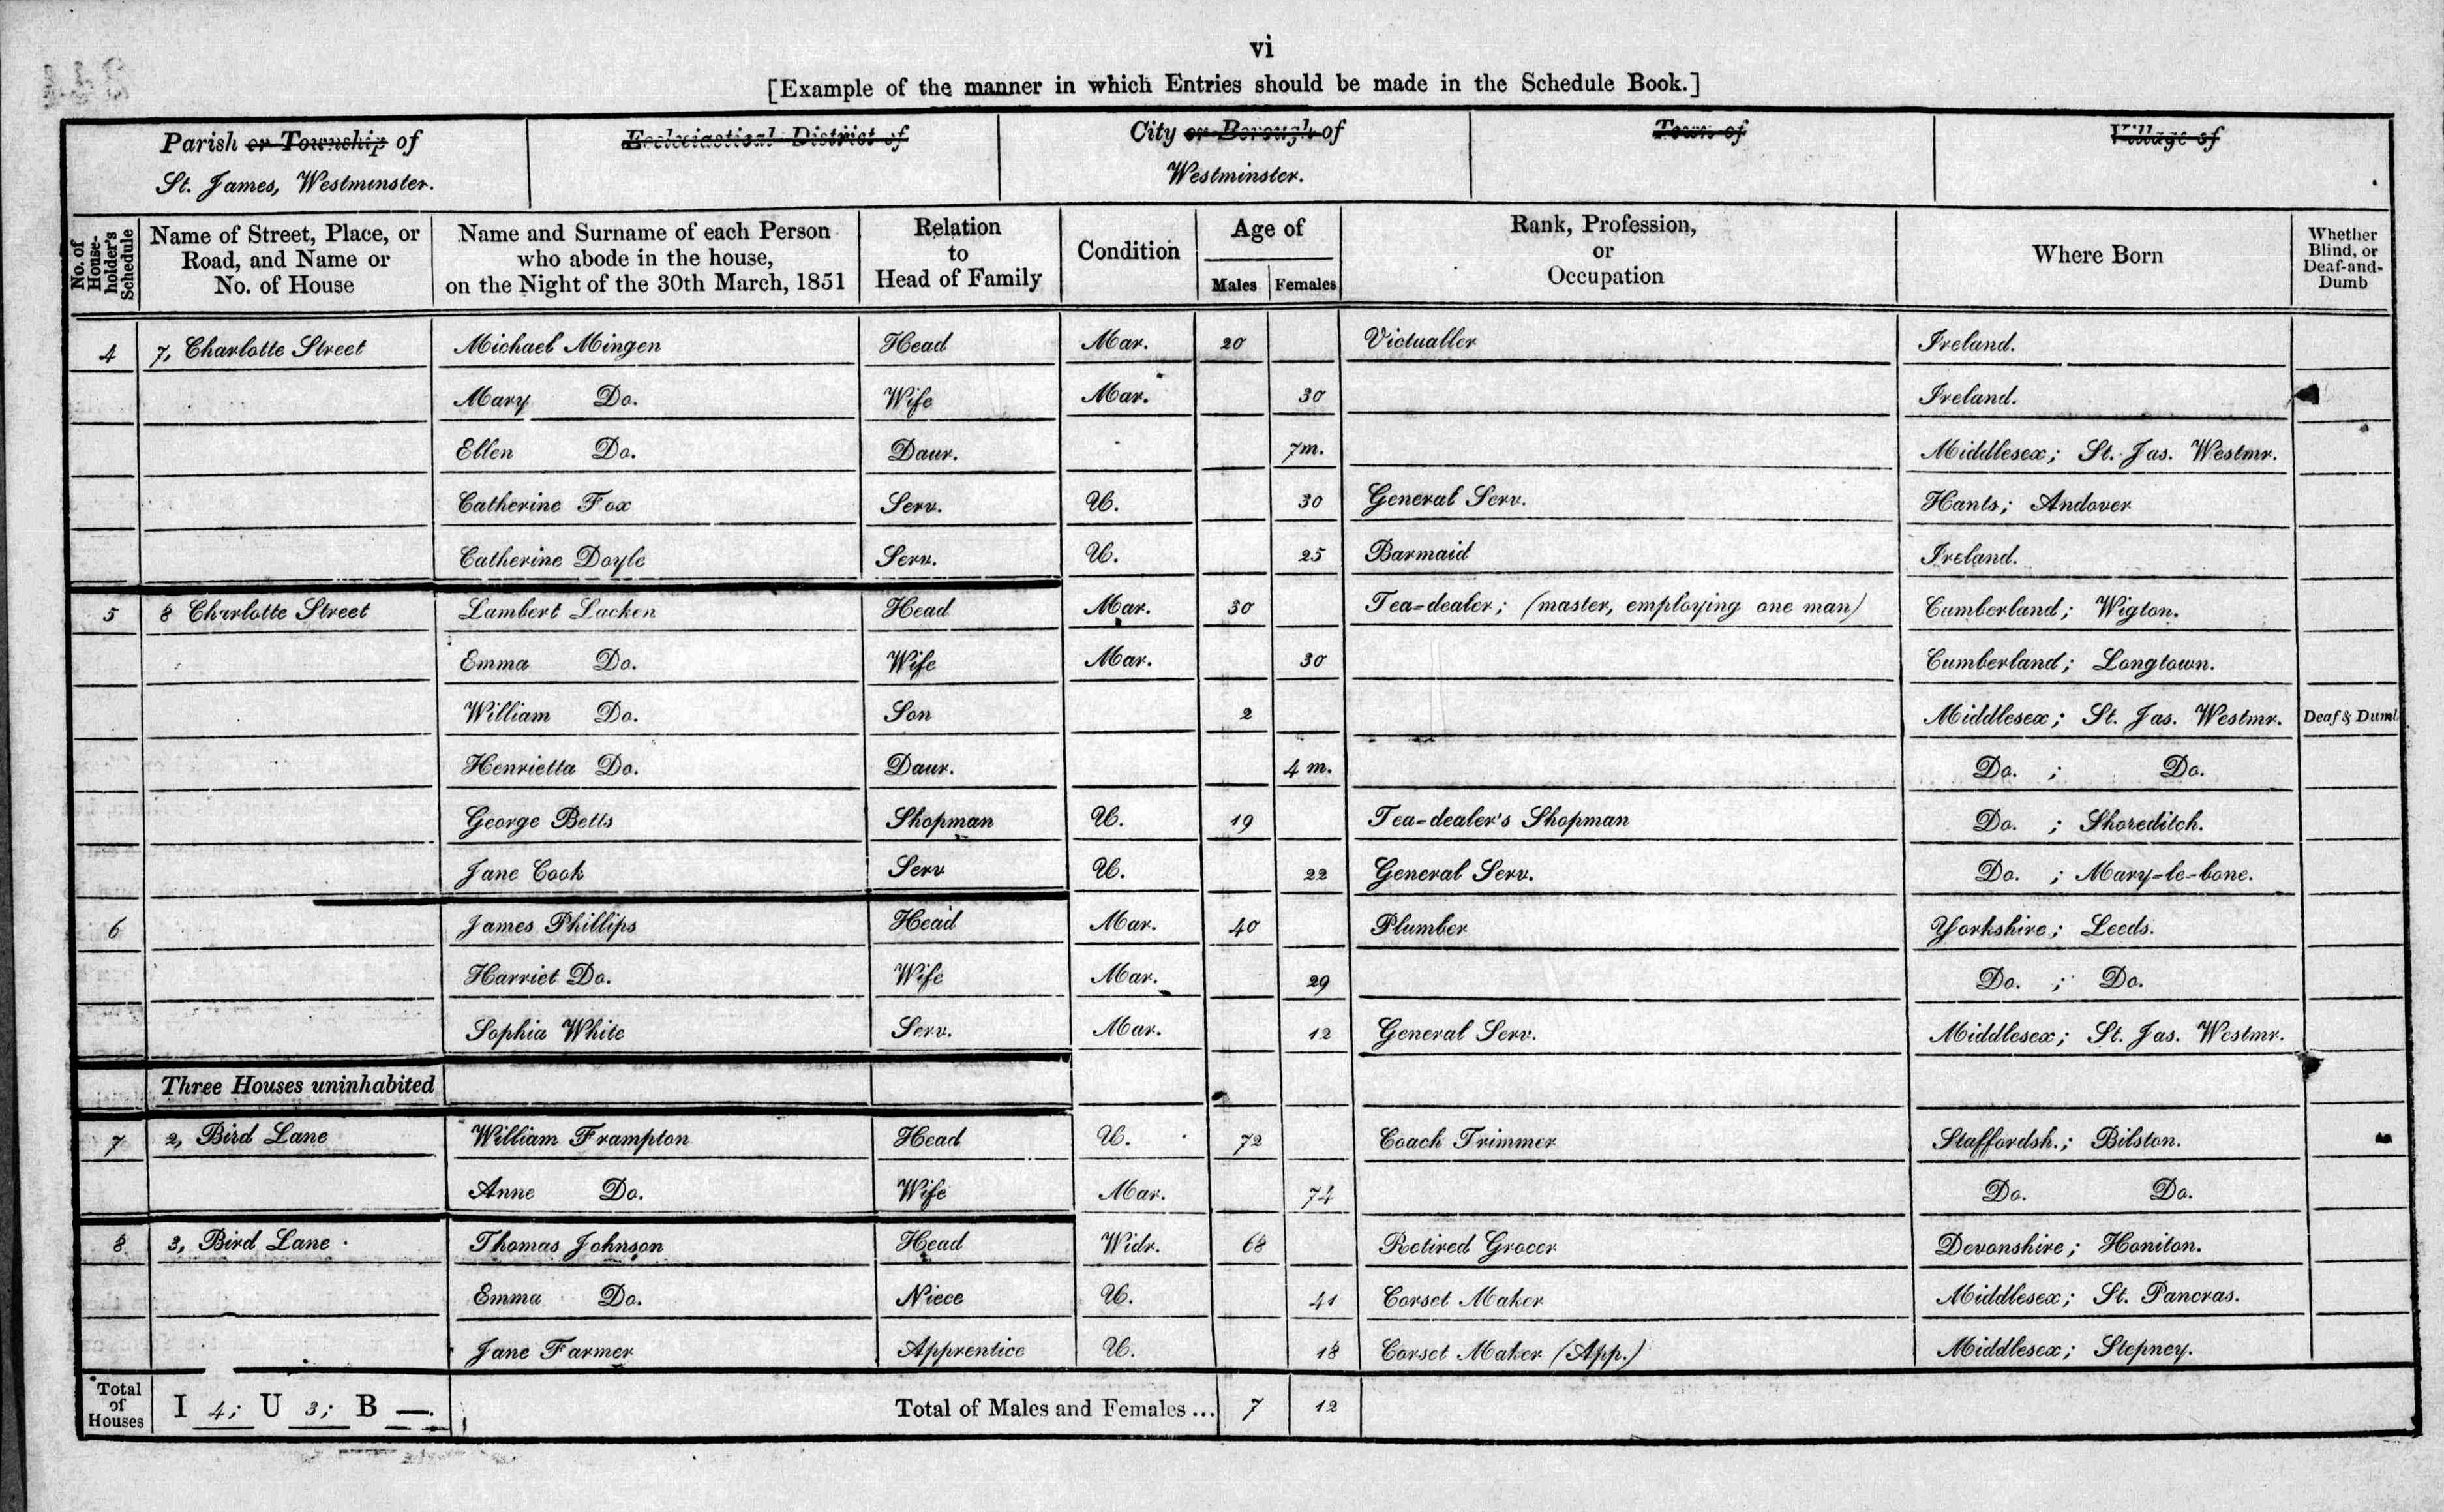 vi
[Example of the manner in which Entries should be made in the Schedule Book.]
Parish or Township of St. James, Westminster. Ecclesiastical District of City or Borough of Westminster. Town of Village of
No. of House-holder's Schedule Name of Street, Place, or Road, and Name or No. of House Name and Surname of each Person who abode in the house, on the Night of the 30th March, 1851 Relation to Head of Family Condition Age of Males Females Rank, Profession, or Occupation Where Born Whether Blind, or Deaf-and-Dumb
4 7, Charlotte Street Michael Mingen Head Mar. 20 Victualler Ireland.
Mary Do. Wife Mar. 30 Ireland.
Ellen Do. Daur. 7m. Middlesex; St. Jas. Westmr.
Catherine Fox Serv. U. 30 General Serv. Hants; Andover
Catherine Doyle Serv. U. 25 Barmaid Ireland.
5 8 Charlotte Street Lambert Lacken Head Mar. 30 Tea-dealer; (master, employing one man) Cumberland; Wigton.
Emma Do. Wife Mar. 30 Cumberland; Longtown.
William Do. Son 2 Middlesex; St. Jas. Westmr. Deaf & Dumb
Henrietta Do. Daur. 4 m. Do. ; Do.
George Betts Shopman U. 19 Tea-dealer's Shopman Do. ; Shoreditch.
Jane Cook Serv U. 22 General Serv. Do. ; Mary-le-bone.
6 James Phillips Head Mar. 40 Plumber Yorkshire; Leeds.
Harriet Do. Wife Mar. 29 Do. ; Do.
Sophia White Serv. Mar. 12 General Serv. Middlesex; St. Jas. Westmr.
Three Houses uninhabited
7 2, Bird Lane William Frampton Head U. 72 Coach Trimmer Staffordsh.; Bilston.
Anne Do. Wife Mar. 74 Do. Do.
8 3, Bird Lane Thomas Johnson Head Widr. 68 Retired Grocer Devonshire; Honiton.
Emma Do. Niece U. 41 Corset Maker Middlesex; St. Pancras.
Jane Farmer Apprentice U. 18 Corset Maker (App.) Middlesex; Stepney.
Total of Houses I 4; U 3; B —. Total of Males and Females ... 7 12